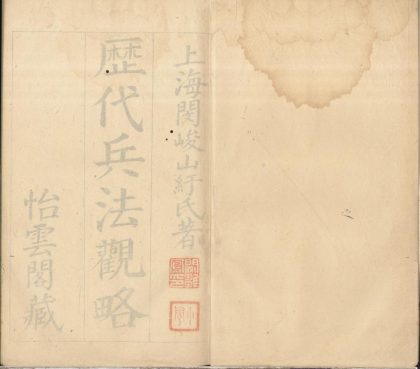 上海閔峻山紆氏著
歷代兵法觀略
怡雲閣藏